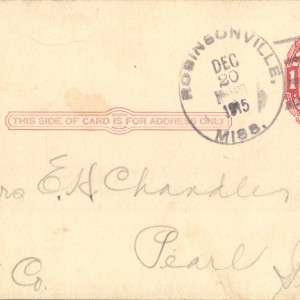 ROBINSONVILLE,
DEC
20
1915
MISS.
THIS SIDE OF CARD IS FOR ADDRESS ONLY
rs E.H. Chandler
Pearl
Co.